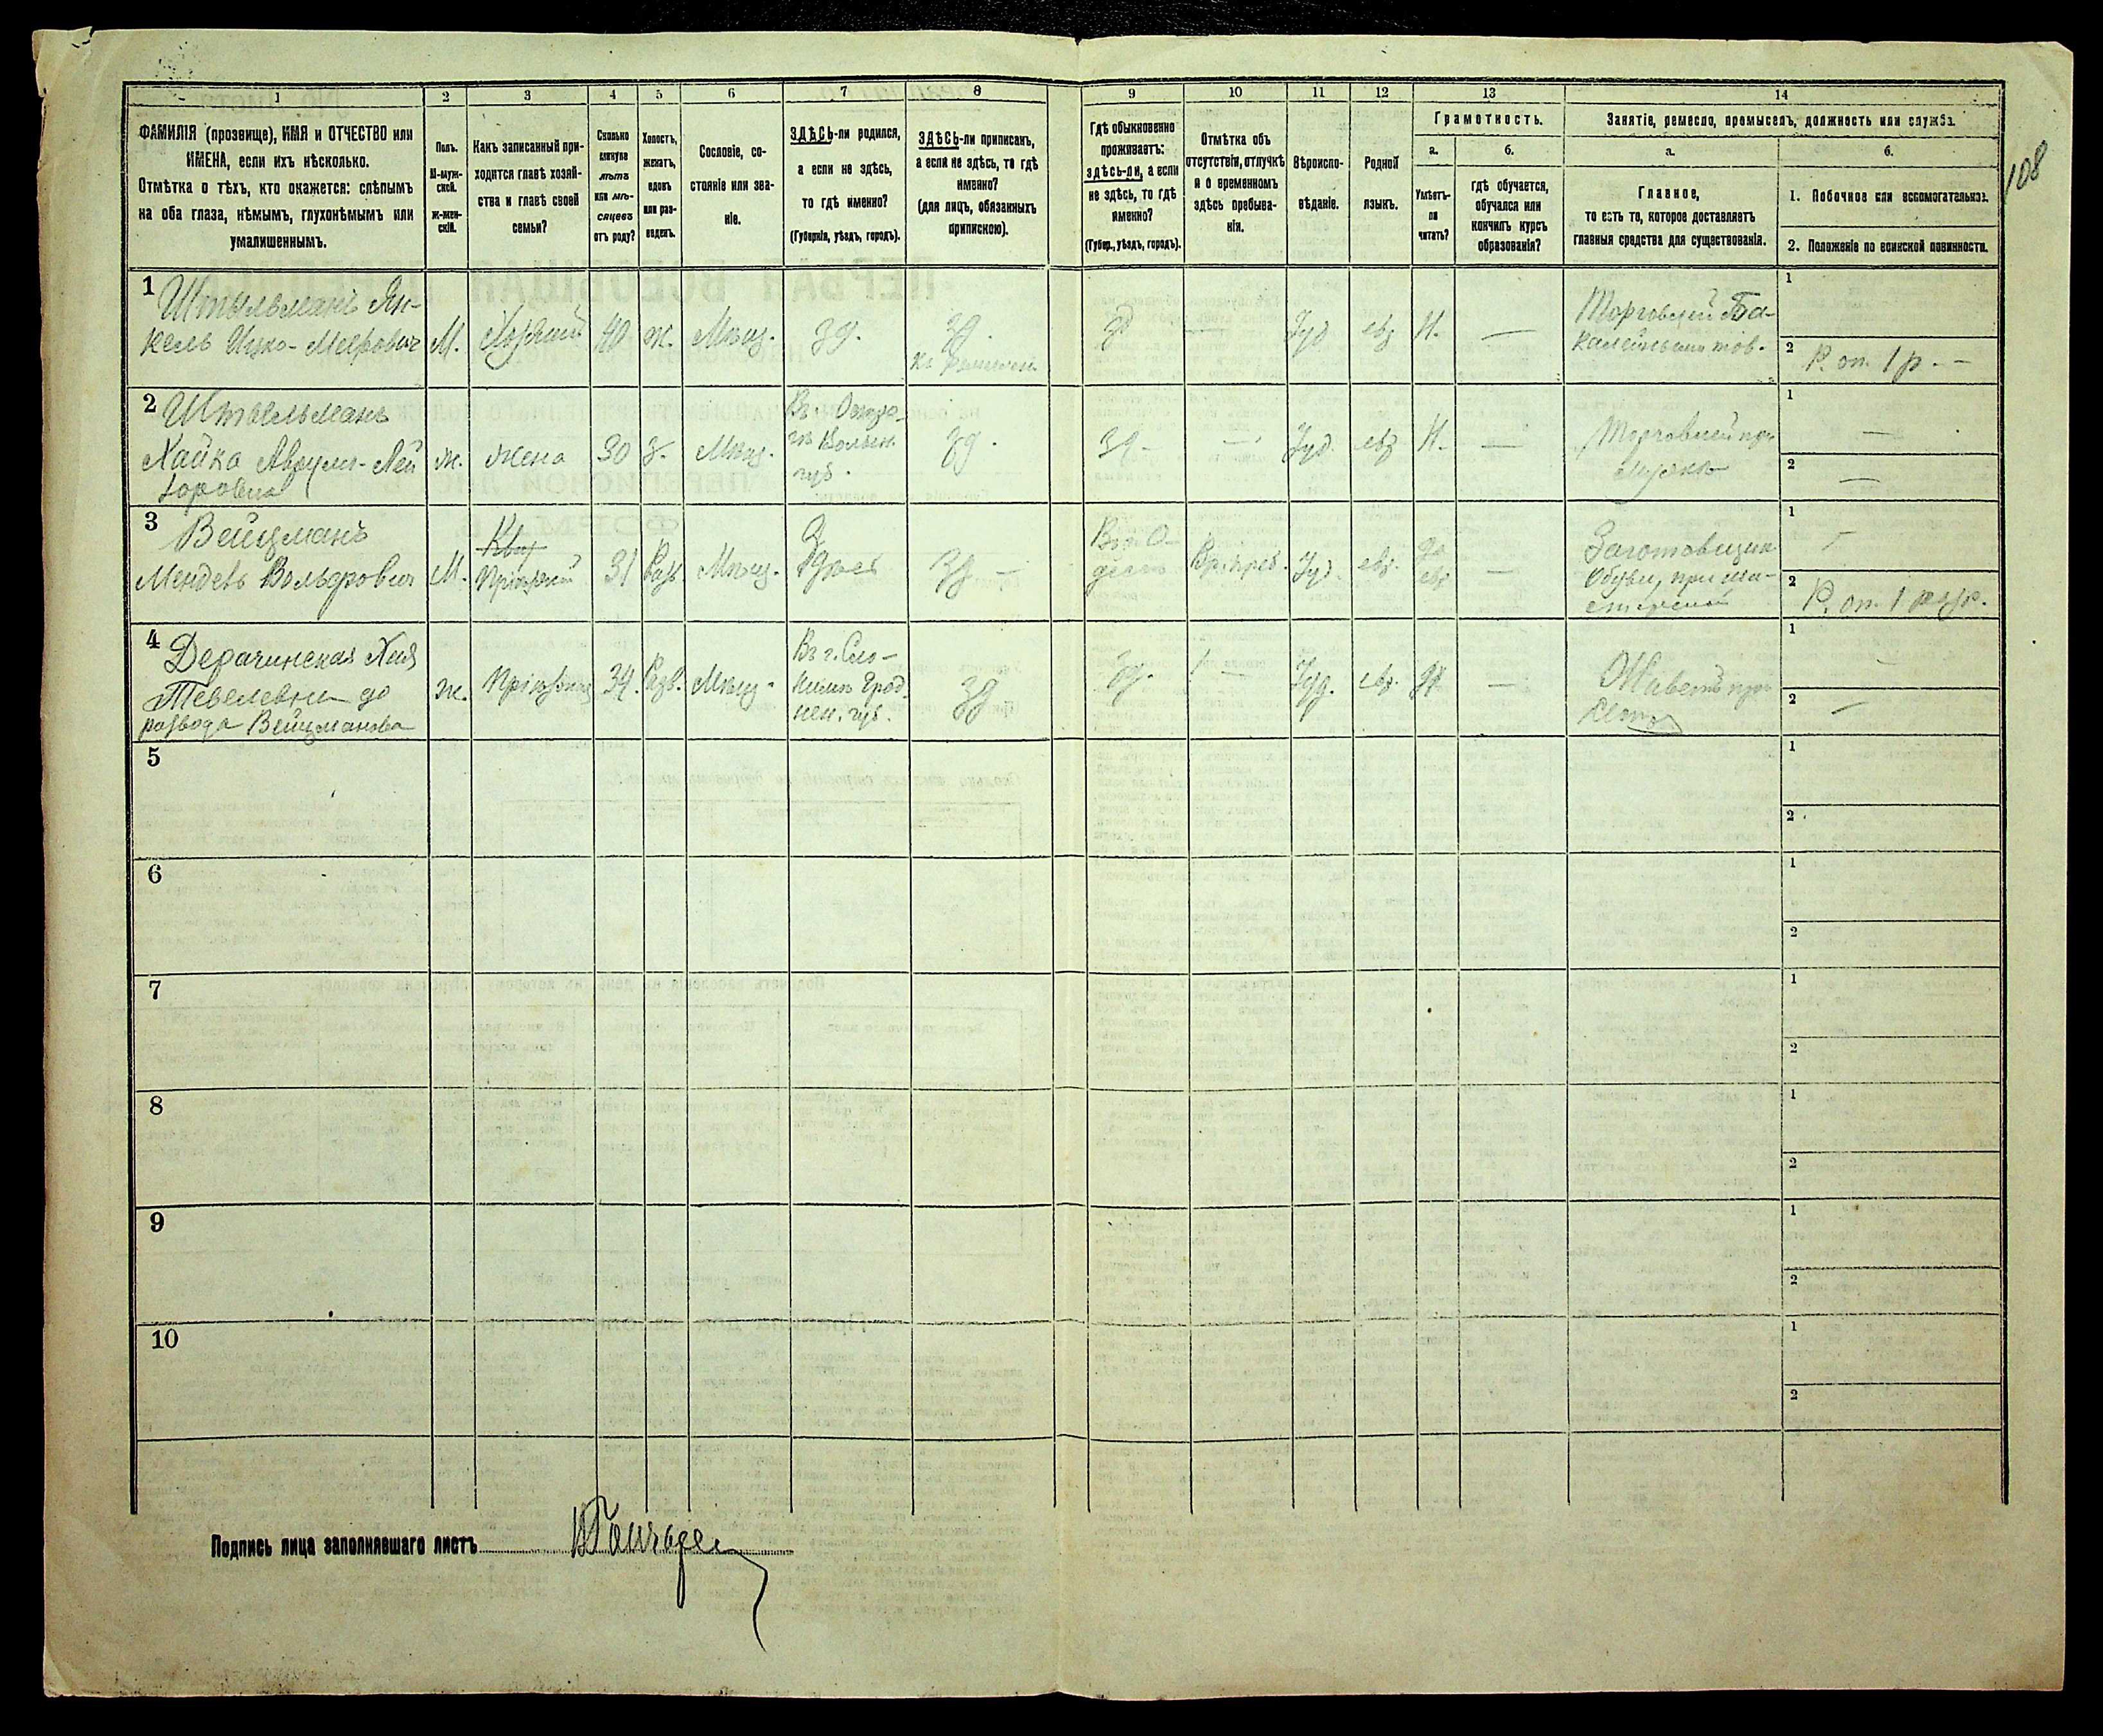 108
1
2
3
4
5
6
7
8
9
10
11
12
13
14
ФАМИЛІЯ (прозвище), ИМЯ и ОТЧЕСТВО или
ИМЕНА, если ихъ нѣсколько.
Отмѣтка о тѣхъ, кто окажется: слѣпымъ
на оба глаза, нѣмымъ, глухонѣмымъ или
умалишеннымъ.
Полъ.
М-муж-
ской.
ж-жен-
скій.
Какъ записанный при-
ходится главѣ хозяй-
ства и главѣ своей
семьи?
Сколько
минуло
лѣтъ
или мѣ-
сяцевъ
отъ роду?
Холостъ,
женатъ,
вдовъ
или раз-
веденъ.
Сословіе, со-
стояніе или зва-
ніе.
ЗДѢСЬ-ли родился,
а если не здѣсь,
то гдѣ именно?
(Губернія, уѣздъ, городъ).
ЗДѢСЬ-ли приписанъ,
а если не здѣсь, то гдѣ
именно?
(для лицъ, обязанныхъ
припискою).
Гдѣ обыкновенно
проживаетъ:
здѣсь-ли, а если
не здѣсь, то гдѣ
именно?
(Губер., уѣздъ, городъ).
Отмѣтка объ
отсутствіи, отлучкѣ
и о временномъ
здѣсь пребыва-
ніи.
Вѣроиспо-
вѣданіе.
Родной
языкъ.
Грамотность.
а.
Умѣетъ-
ли
читать?
б.
гдѣ обучается,
обучался или
кончилъ курсъ
образованія?
Занятіе, ремесло, промыселъ, должность или служба.
а.
Главное,
то есть то, которое доставляетъ
главныя средства для существованія.
б.
1. Побочное или вспомогательное.
2. Положеніе по воинской повинности.
1
Штыльманъ Ян-
кель Ицко-Меерович
М.
Хозяинъ
40
ж.
Мѣщ.
зд.
зд.
зд
—
Іуд
евр
Н.
—
Торговлей Ба-
калейными тов.
1
2 Р. оп. 1 р. —
2
Штыльманъ
Хайка Аврумъ-Лей
зоровна
ж.
жена
30
з.
Мѣщ.
Волын.
губ.
зд.
зд —
—
Іуд.
евр
Н.
—
Торговлей при
мужѣ
1 —
2 —
3
Вейцманъ
Мендель Вольфовичъ
М.
Пріѣзжій
31
Разв
Мѣщ.
Здѣсь
зд —
Въ г. О-
дессѣ
Вр. преб.
Іуд.
евр.
да
евр
—
Заготовщикъ
обуви, при ма-
стерской
1 —
2 Р. оп. 1 разр.
4
Дерачинская Хая
Тевелевна до
развода Вейцманова
ж.
34.
Разв.
Мѣщ.
Въ г. Сло-
нимѣ Грод
нен. губ.
зд
зд.
—
Іуд.
евр.
Н
—
Живетъ при
1
2 —
5
1
2
6
1
2
7
1
2
8
1
2
9
1
2
10
1
2
Подпись лица заполнявшаго листъ